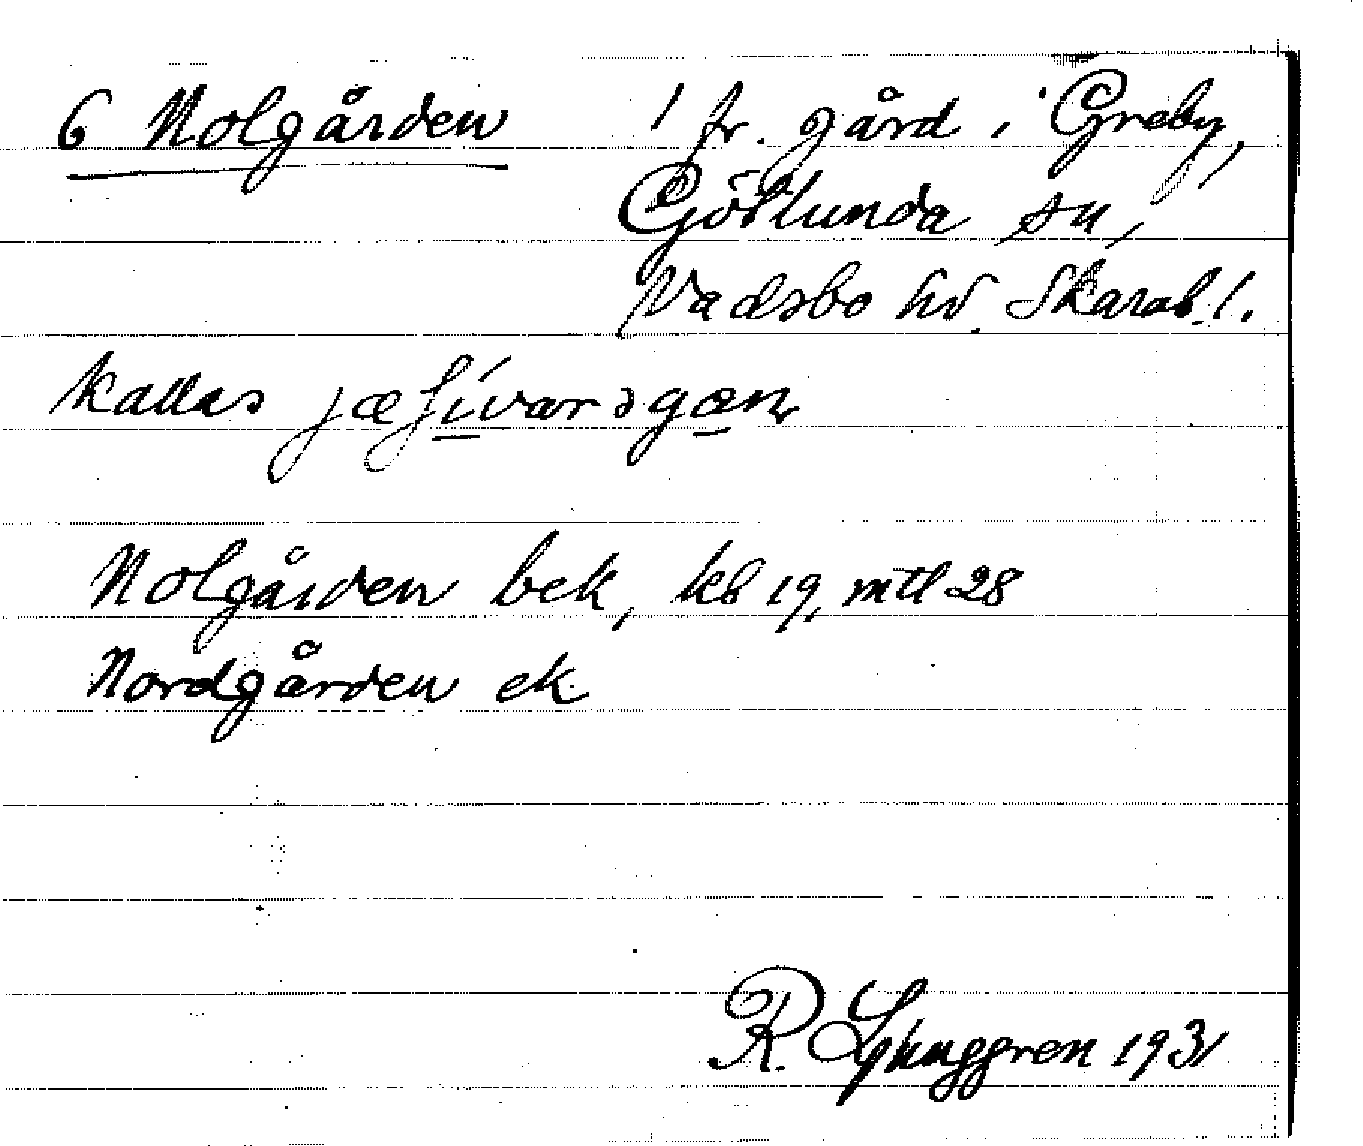 6 Nolgården 1 fr. gård i Greby,
Götlunda sn,
Vadsbo hd. Skarab. l.
kallas
Nolgården bek, kb 19, mtl 28
Nordgården ek
R. Ljunggren 1931